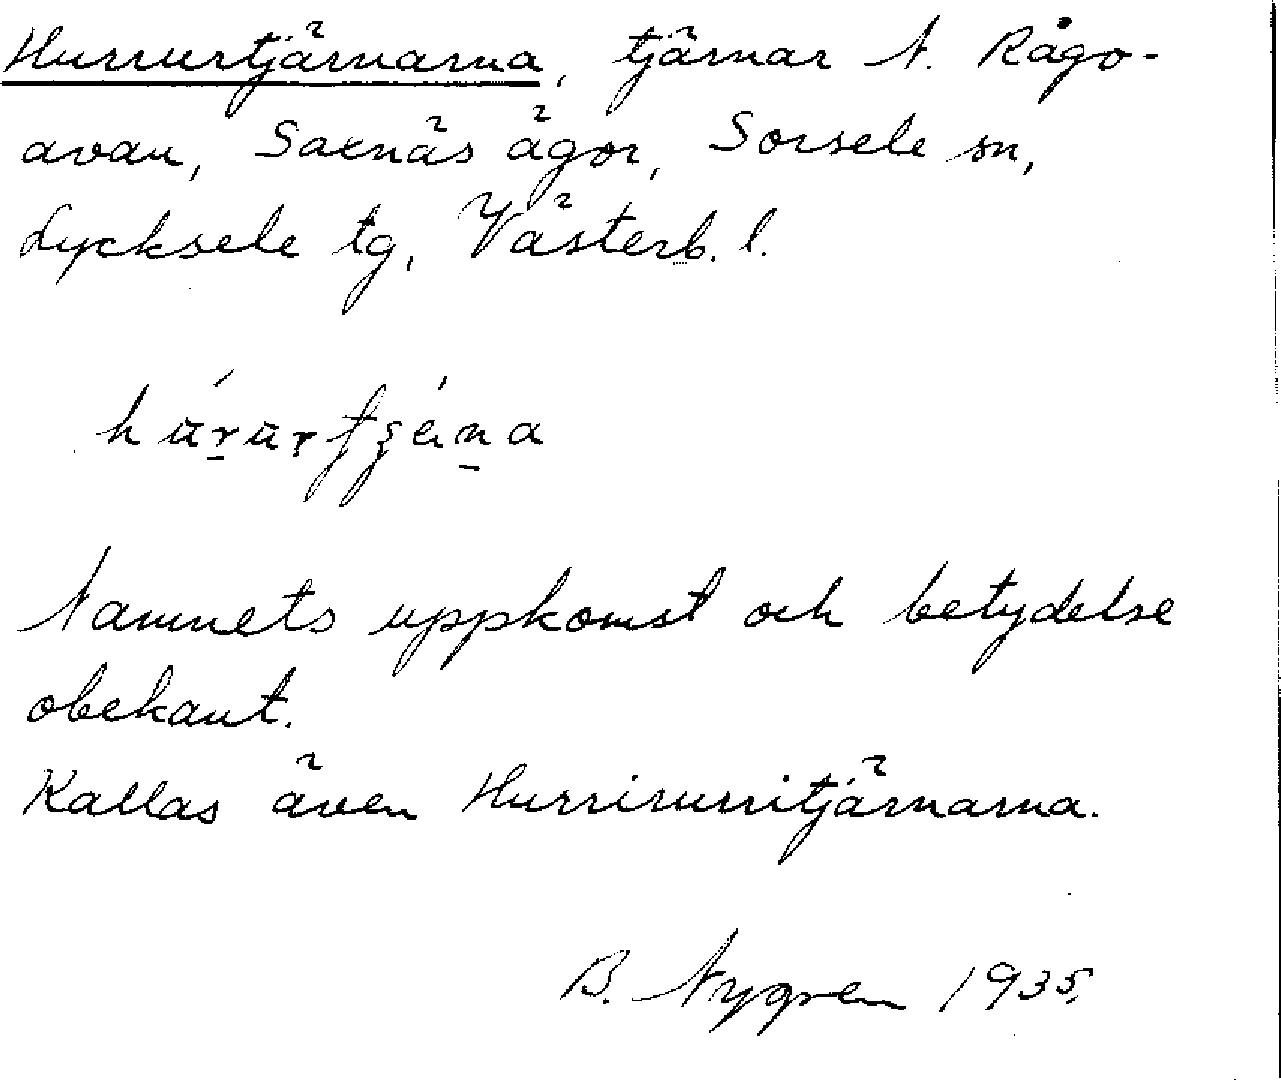 Hurrurtjärnarna, tjärnar N. Rågo-
avan, Saxnäs ägor, Sorsele sn,
Lycksele tg, Västerb. l.
Namnets uppkomst och betydelse
obekant.
Kallas även Hurrirurritjärnarna.
B. Nygren 1935.